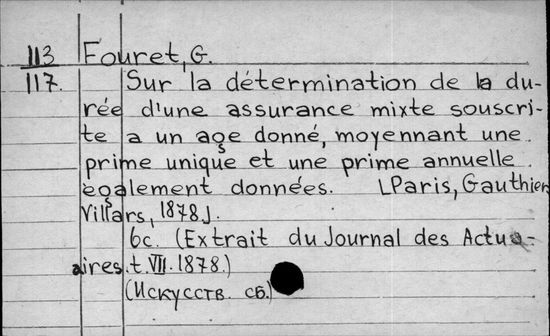 113 Fouret, G.
117. Sur la détermination de la du-
rée d'une assurance mixte souscri-
te a un age donné, moyennant une
prime unique et une prime annuelle
egalement données. [Paris, Gauthier
Villars, 1878].
6c. (Extrait du Journal des Actua-
aires. t. VII. 1878.)
(Искусств. сб.)